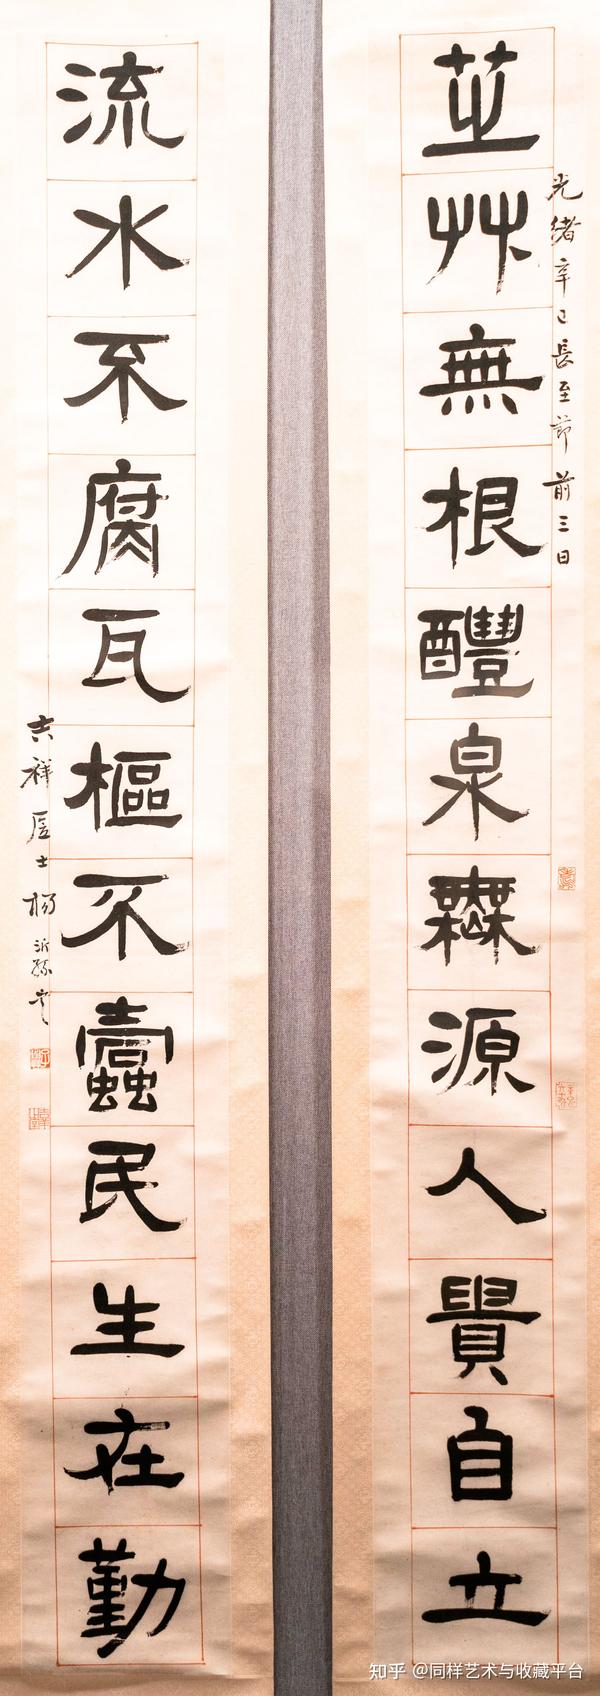 光緒辛巳長至節前三日
芝艸無根醴泉橆源人貴自立
流水不腐瓦樞不蠹民生在勤
吉祥居士楊沂孫
知乎 @同样艺术与收藏平台